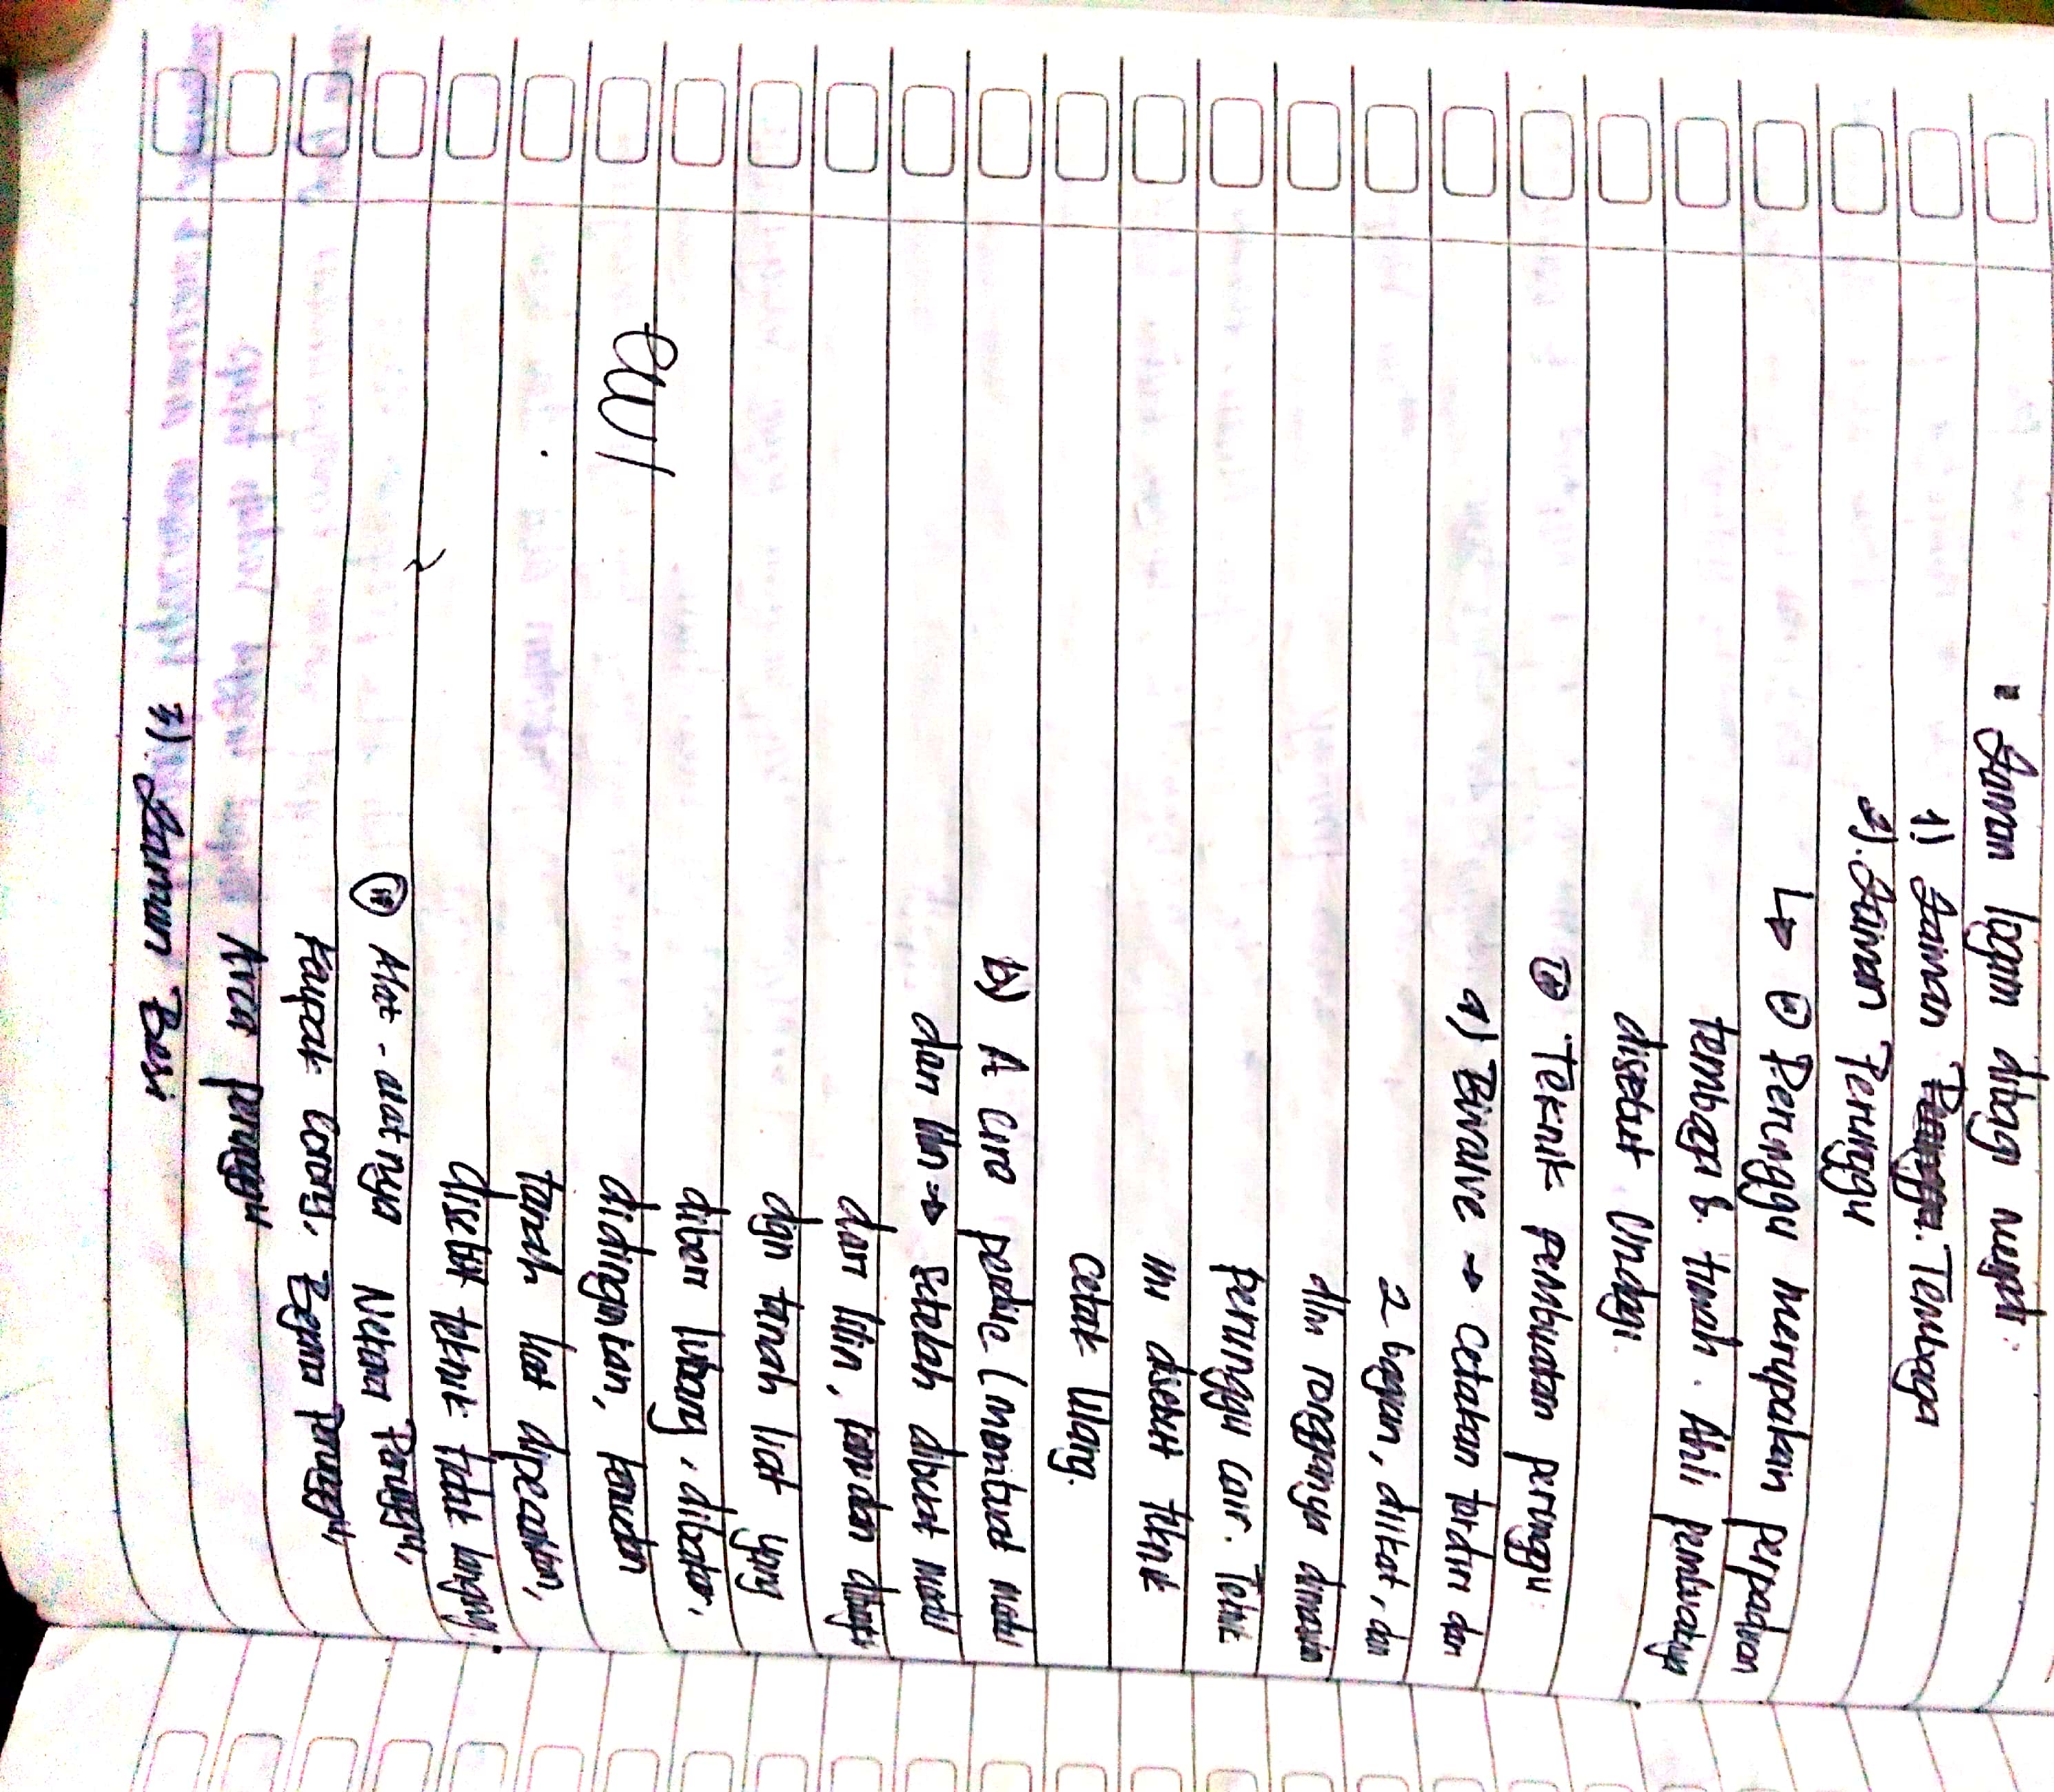 Zaman logam dibag mnjdi:
1) Zaman Tembaga
2). Zaman Perunggu
↳ Perunggu merupakan perpaduan
tembaga & timah. Ahli pembuatnya
disebut Undagi.
Teknik pembuatan perunggu:
a) Bivalve → Cetakan terdiri dari
2 bagian, diikat, dan
dlm rongganya dimasukn
perunggu cair. Teknik
ini disebut teknik
cetak Ulang.
b) A Cire perdue (membuat model
dari lilin → Setelah dibuat model
dari lilin, kemudian dilapisi
dgn tanah liat yang
diberi lubang, dibakar,
didinginkan, kemudian
tanah liat dipecahkan,
disebut teknik tidak langsung
Alat-alatnya Nekara Perunggu,
Kapak Corong, Bejana Perunggu,
Arca Perunggu
3). Zaman Besi